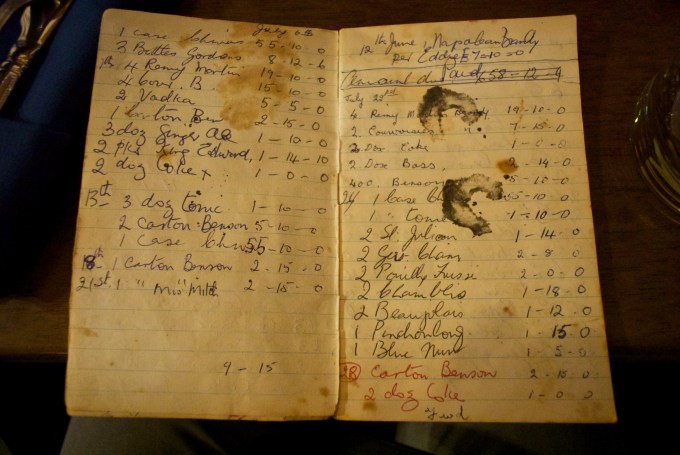 July 6th
1 case Chivas 55-10-0
3 Bottles Gordons 8-12-6
4 Remy Martin 19-10-0
4 B. 15-10-0
2 Vadka 5-5-0
1 Carton Ben 2-15-0
3 dog Ginger Ale 1-10-0
2 pks King Edward, 1-14-10
2 dog Coke x 1-0-0
13th 3 dog tonic 1-10-0
2 Carton Benson 5-10-0
1 Case Chivas 55-10-0
18th 1 Carton Benson 2-15-0
21st, 1 " Mitch 2-15-0
9-15
12th June 1 Napolean
per Eddie £7=10=0
Paid 58-12-9
July 28th
4. Remy 19-10-0
2. 7-15-0
2. Doz. Coke 1-0-0
2. Doz Bass. 2-14-0
400. Benson 5-10-0
1 Case 55-10-0
1 " tonic 1-10-0
2 St. Julien 1-14-0
2 2-8-0
2 Pouilly Fussi 2-0-0
2 Chamblis 1-18-0
2 Beaujolais 1-12-0
1 1-15-0
1 Blue Nun 1-5-0
Carton Benson 2-15-0
2 dog Coke 1-0-0